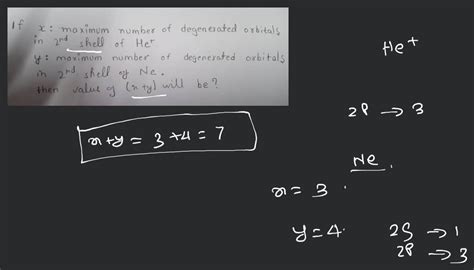 If x: maximum number of degenerated orbitals
in 2nd shell of He+
y: maximum number of degenerated orbitals
in 2nd shell of Ne.
then value of (x+y) will be?
He+
2P → 3
x+y = 3+4 = 7
Ne.
x = 3.
y = 4.
2S → 1
2P → 3